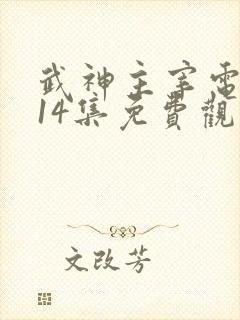 武神主宰電
14集免費觀
文改芳